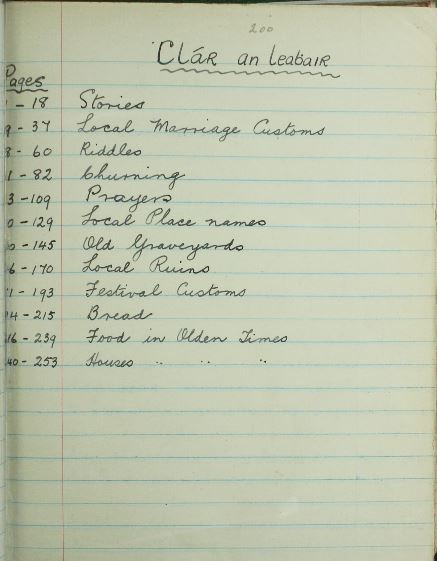 200
Clár an leaḃair
Pages
1 - 18 Stories
9 - 37 Local Marriage Customs
8 - 60 Riddles
1 - 82 Churning
3 - 109 Prayers
0 - 129 Local Place names
0 - 145 Old Graveyards
6 - 170 Local Ruins
71 - 193 Festival Customs
94 - 215 Bread
16 - 239 Food in Olden Times
40 - 253 Houses " " "